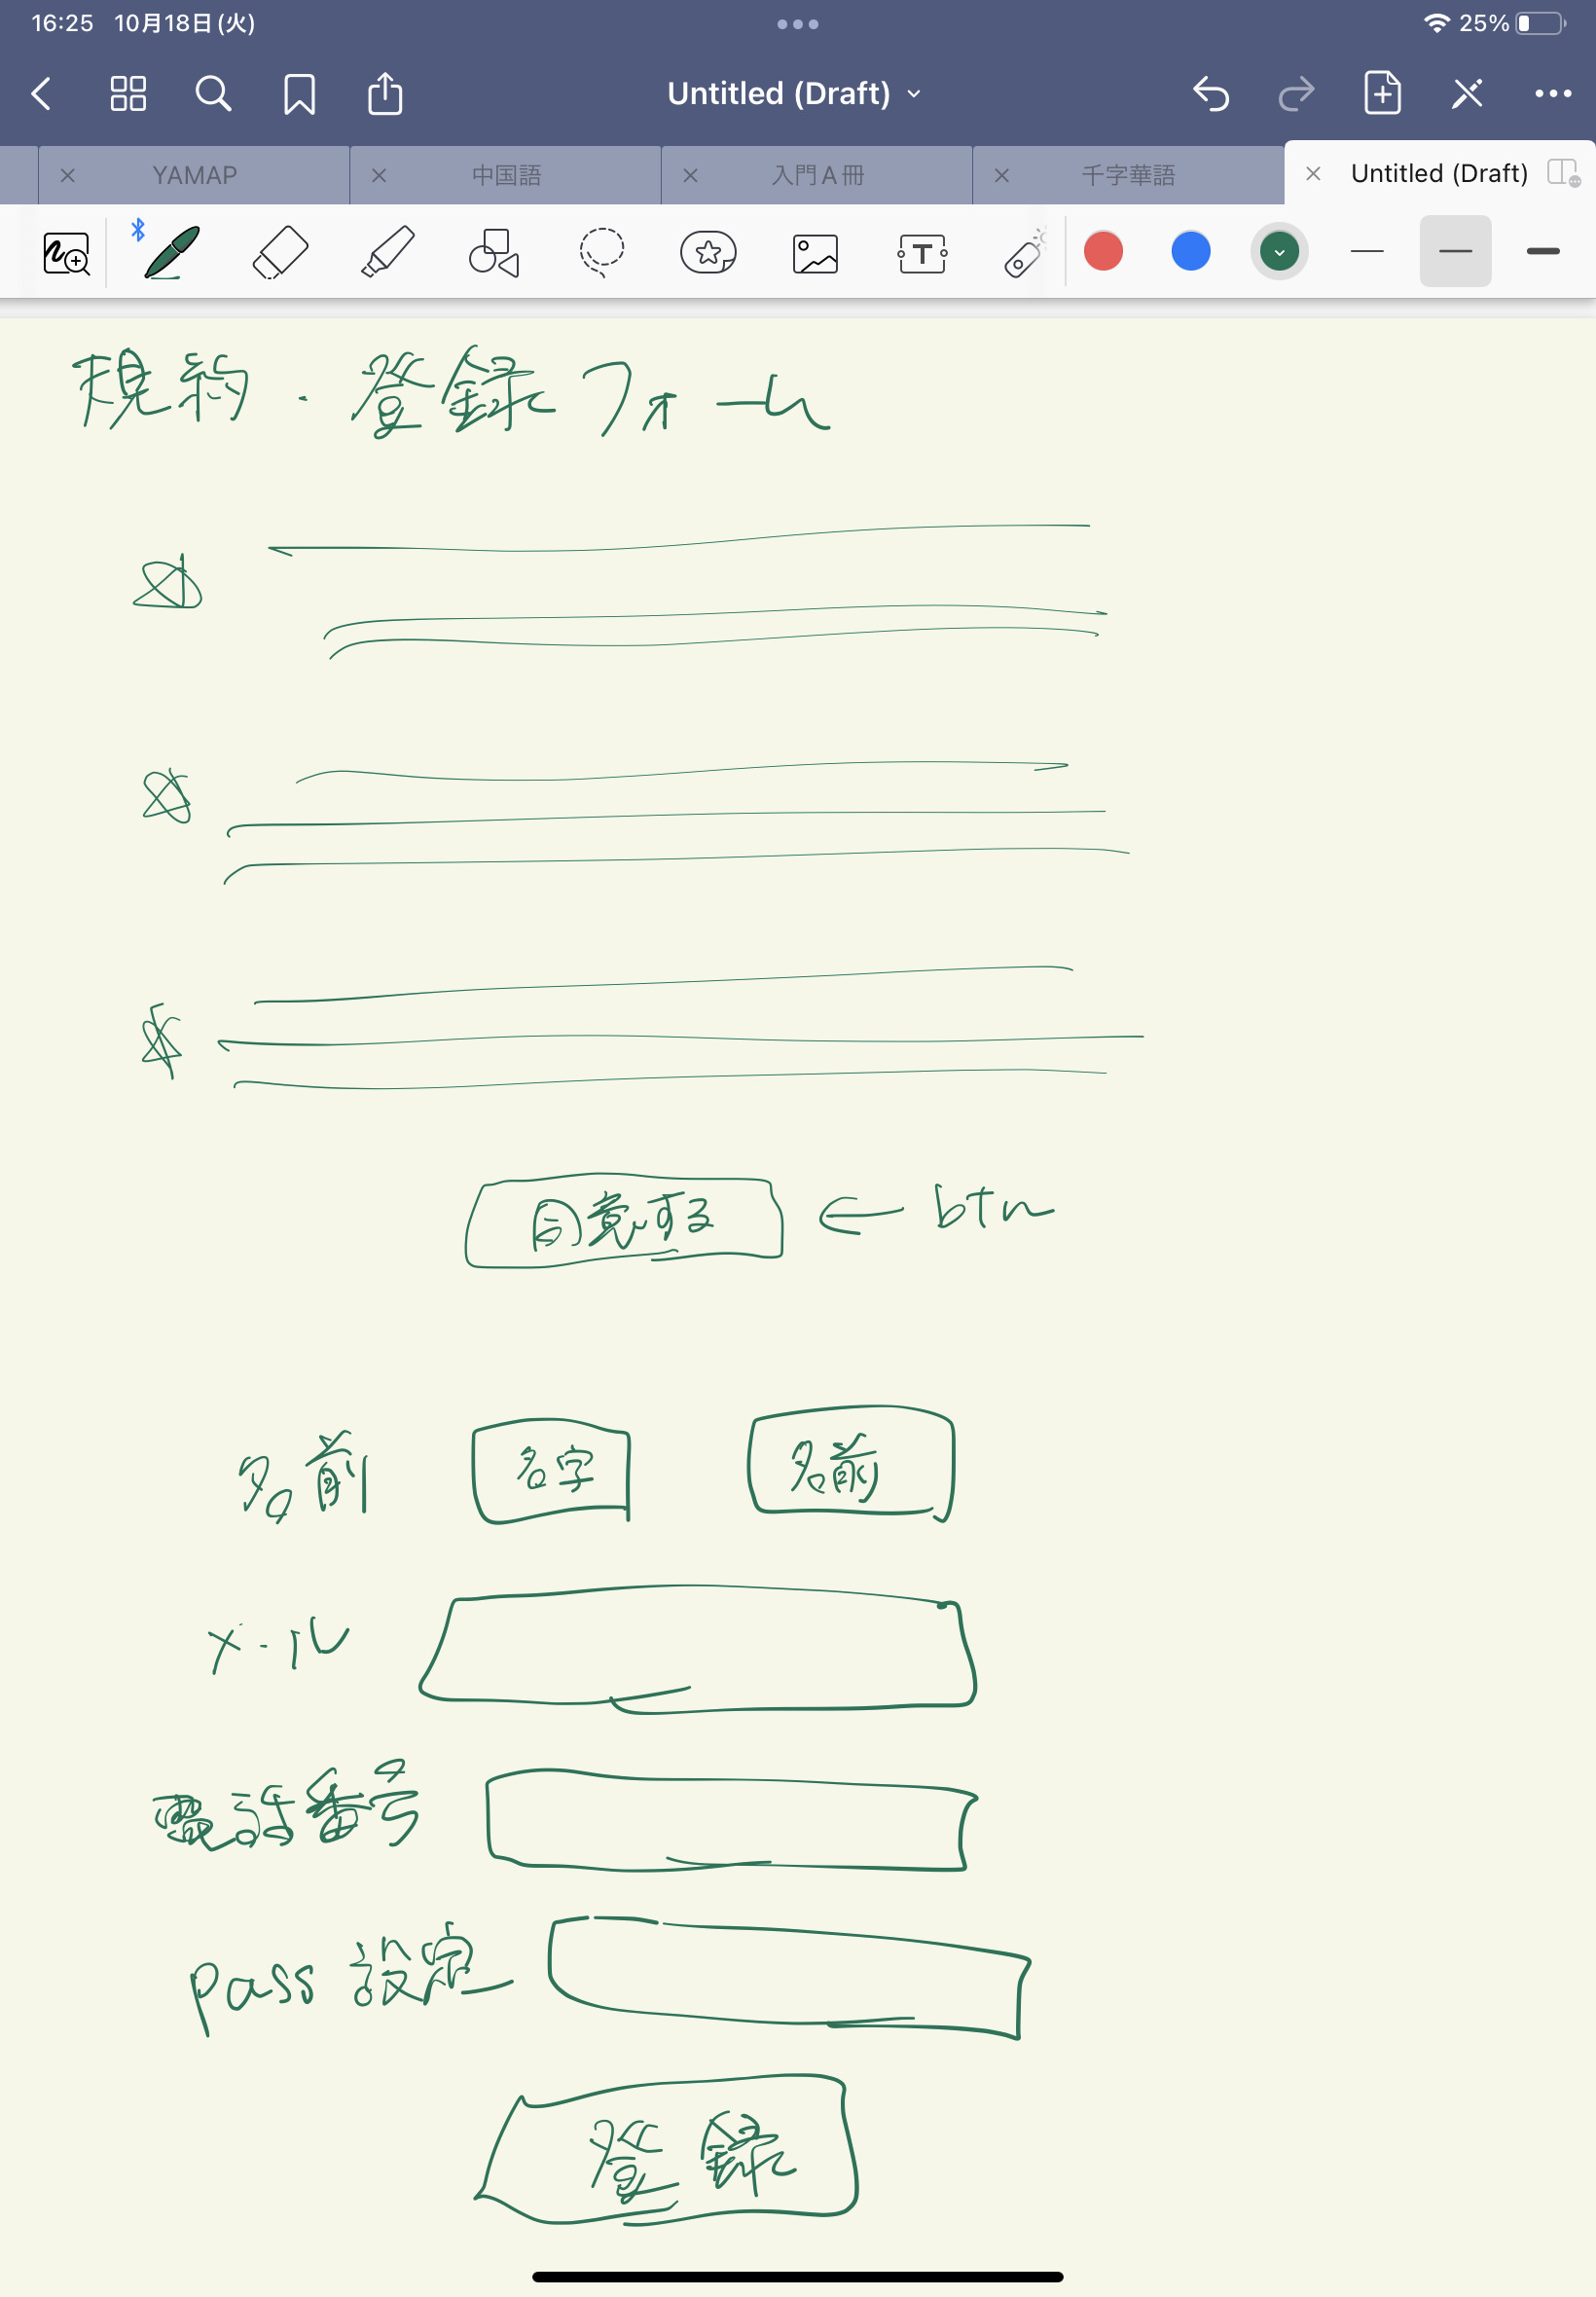 16:25 10月18日(火) 25%
Untitled (Draft)
YAMAP 中国語 入門A冊 千字華語 Untitled (Draft)
T
規約・登録フォーム
同意する ← btn
名前 名字 名前
メール
電話番号
pass 設定
登録